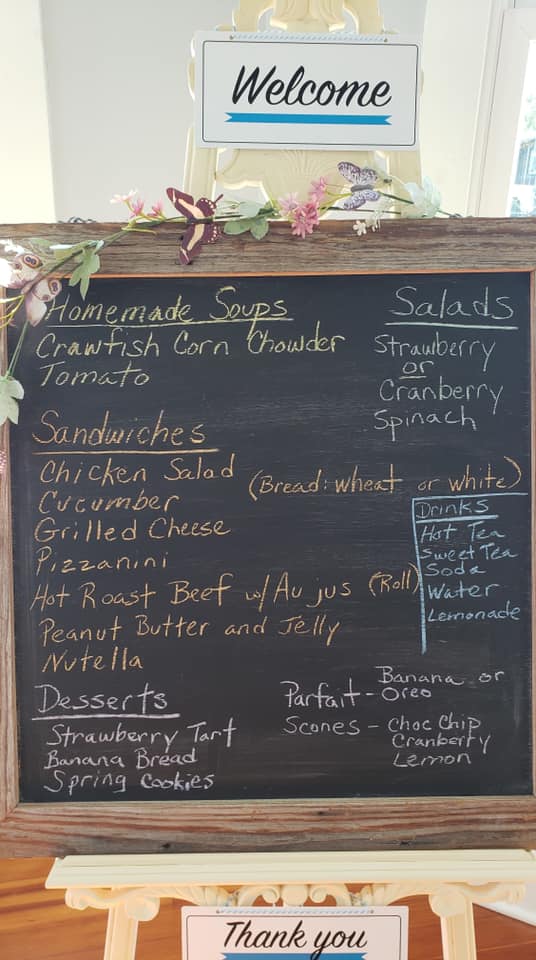 Welcome
Homemade Soups
Crawfish Corn Chowder
Tomato
Salads
Strawberry
or
Cranberry
Spinach
Sandwiches
Chicken Salad
(Bread: wheat or white)
Cucumber
Grilled Cheese
Pizzanini
Hot Roast Beef w/ Au jus (Roll)
Peanut Butter and Jelly
Nutella
Drinks
Hot Tea
Sweet Tea
Soda
Water
Lemonade
Desserts
Strawberry Tart
Banana Bread
Spring Cookies
Parfait - Banana or
Oreo
Scones - Choc Chip
Cranberry
Lemon
Thank you